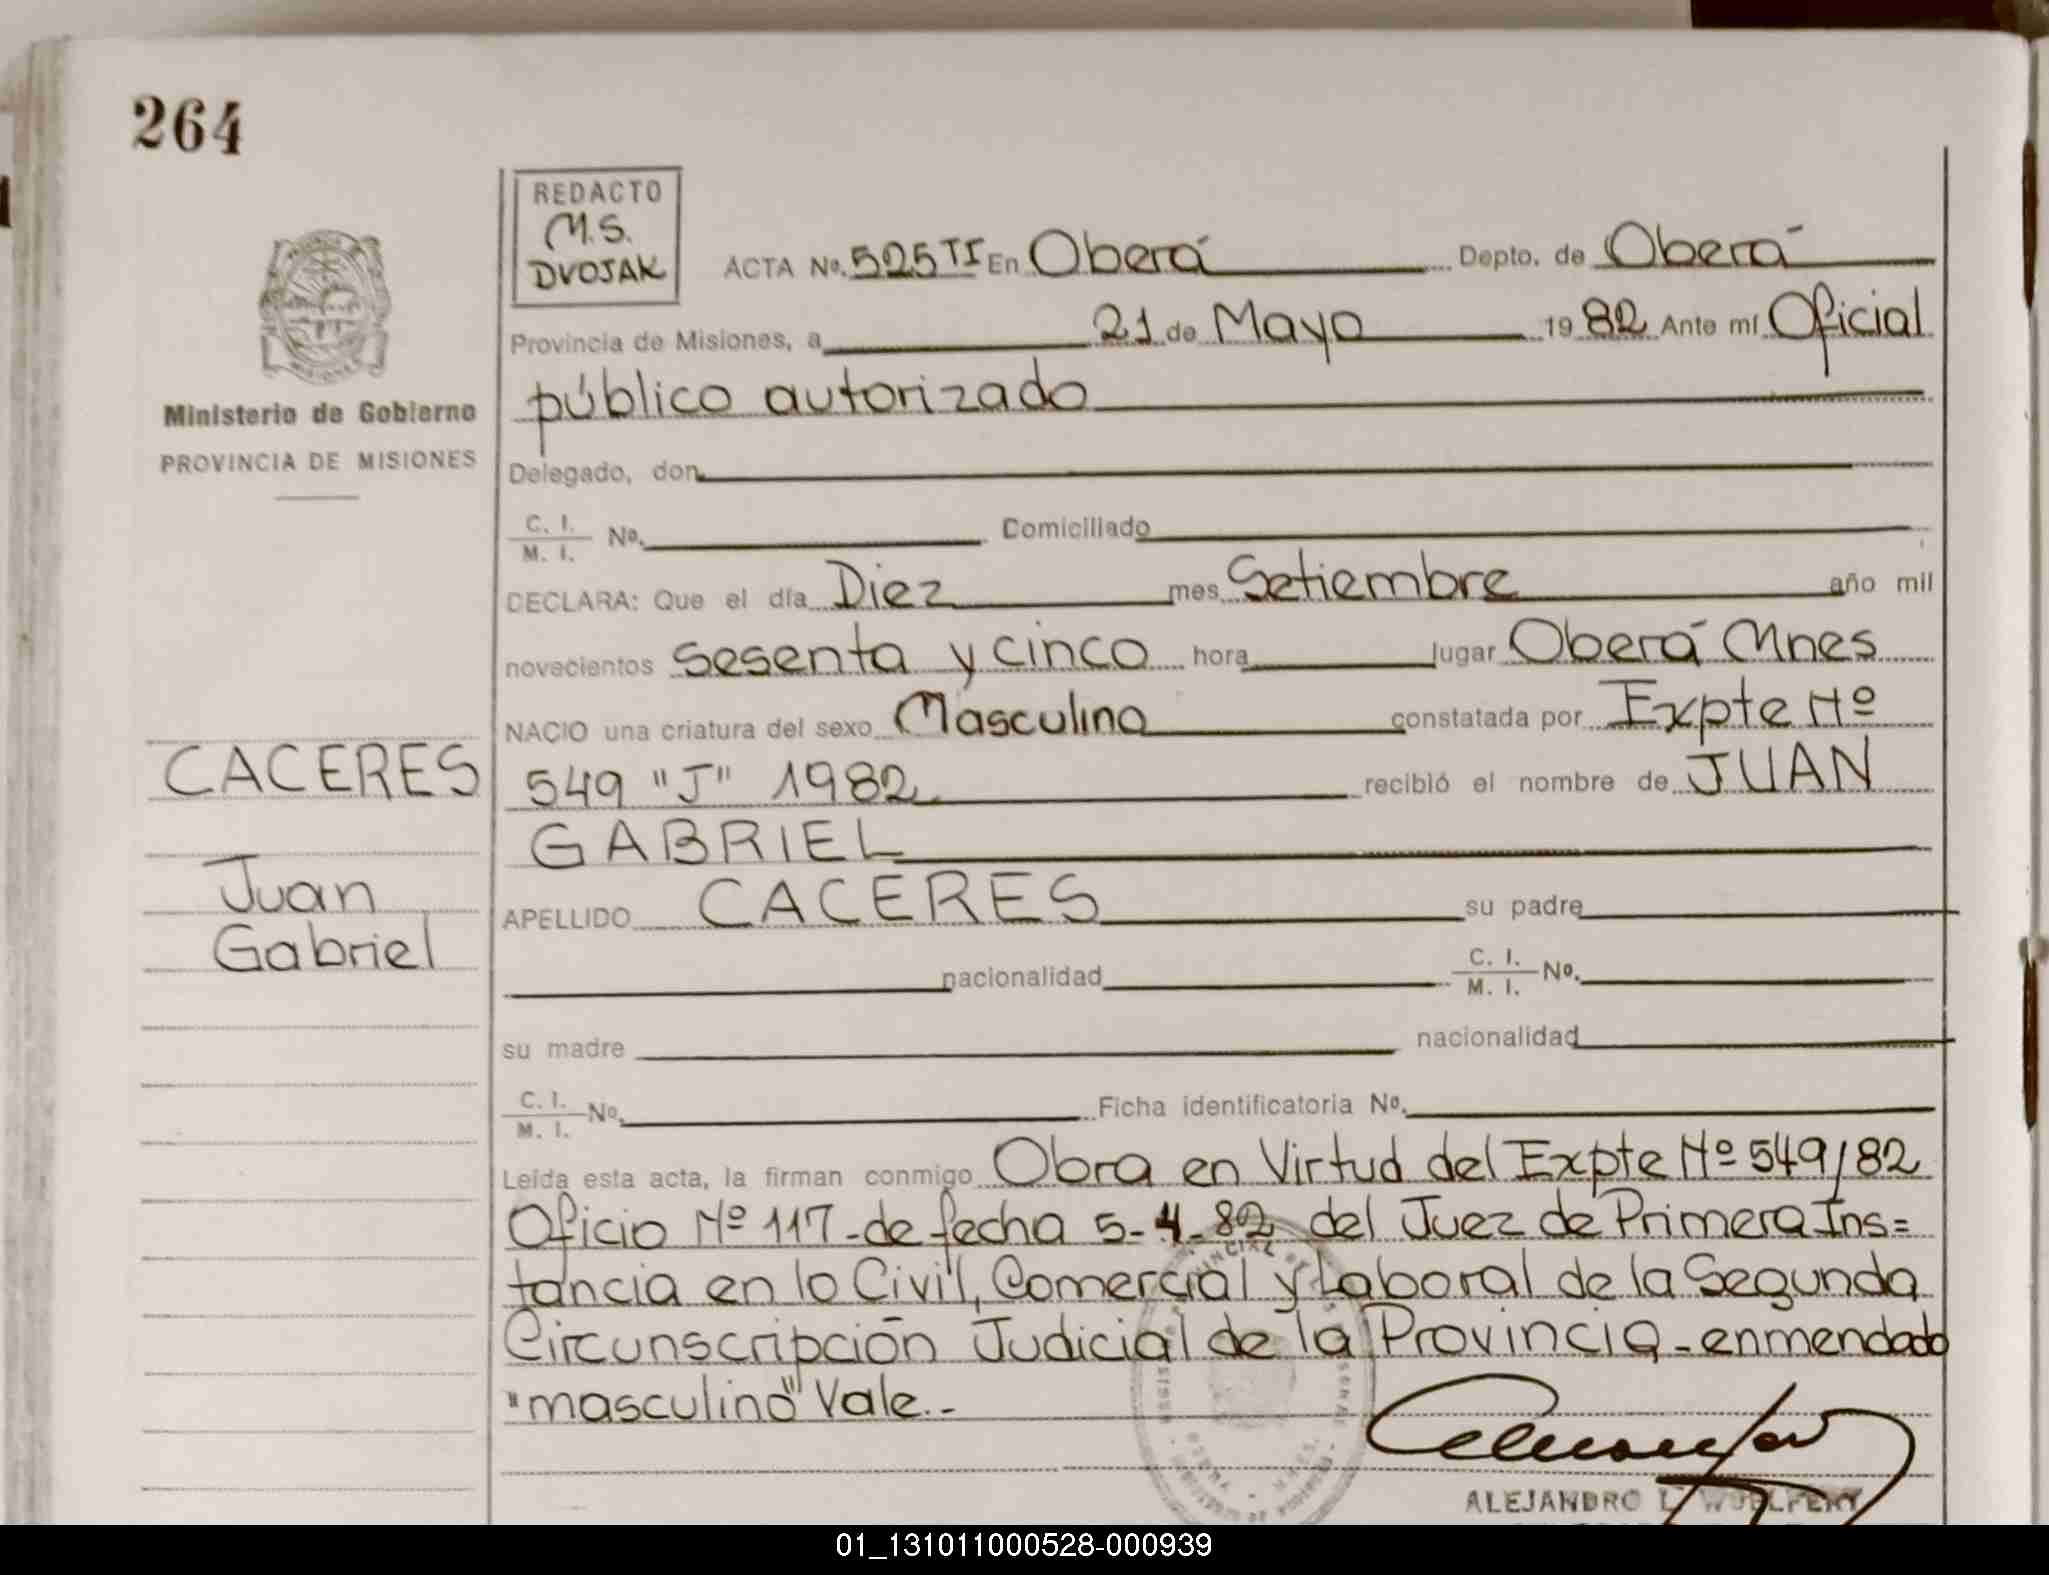 264
REDACTO
M.S.
DVOJAK
ACTA No. 525 TI En Oberá Depto. de Oberá
Provincia de Misiones, a 21 de Mayo 19 82 Ante mí Oficial
público autorizado
Ministerio de Gobierno
PROVINCIA DE MISIONES
Delegado, don
C. I.
M. I. No. Domiciliado
DECLARA: Que el día Diez mes Setiembre año mil
novecientos sesenta y cinco hora lugar Oberá Mnes
NACIO una criatura del sexo Masculino constatada por Expte Nº
CACERES
549 "J" 1982 recibió el nombre de JUAN
GABRIEL
Juan
Gabriel
APELLIDO CACERES su padre
nacionalidad C. I.
M. I. No.
su madre nacionalidad
C. I.
M. I. No. Ficha identificatoria No.
Leída esta acta, la firman conmigo Obra en Virtud del Expte Nº 549/82
Oficio Nº 117-de fecha 5-4-82 del Juez de Primera Ins=
tancia en lo Civil, Comercial y Laboral de la Segunda
Circunscripción Judicial de la Provincia-enmendado
"masculino" Vale.-
ALEJANDRO L.
01_131011000528-000939